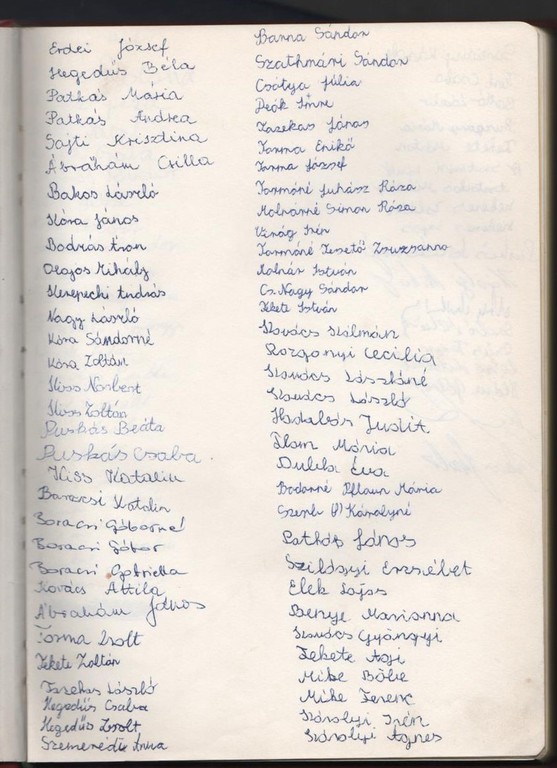 Erdei József
Hegedűs Béla
Patkás Mária
Patkás Andrea
Sajti Krisztina
Ábrahám Csilla
Bakos László
Kóra János
Bodrás
Olajos Mihály
András
Nagy László
Kósa Sándorné
Kósa Zoltán
Kiss Norbert
Kiss Zoltán
Puskás Beáta
Puskás Csaba
Kiss Katalin
Baracsi Katalin
Baracsi Gáborné
Baracsi Gábor
Baracsi Gabriella
Kovács Attila
Ábrahám János
Torma Zsolt
Fekete Zoltán
Fazekas László
Hegedűs Csaba
Hegedűs Zsolt
Szemerédi Anna
Barna Sándor
Szathmári Sándor
Csátya Júlia
Deák Imre
Fazekas János
Torma Enikő
Torma József
Tormáné Juhász Róza
Molnárné Simon Róza
Virág Irén
Tormáné Zsuzsanna
Molnár István
Cs. Nagy Sándor
Fekete István
Kovács Kálmán
Rozgonyi Cecília
Kovács Lászlóné
Kovács László
Hadabás Judit
Mária
Éva
Bodorné Pflaum Mária
Károlyné
János
Szilágyi Erzsébet
Elek Lajos
Benye Marianna
Kovács Gyöngyi
Fekete Ági
Mike Böbe
Mike Ferenc
Károlyi Irén
Károlyi Ágnes